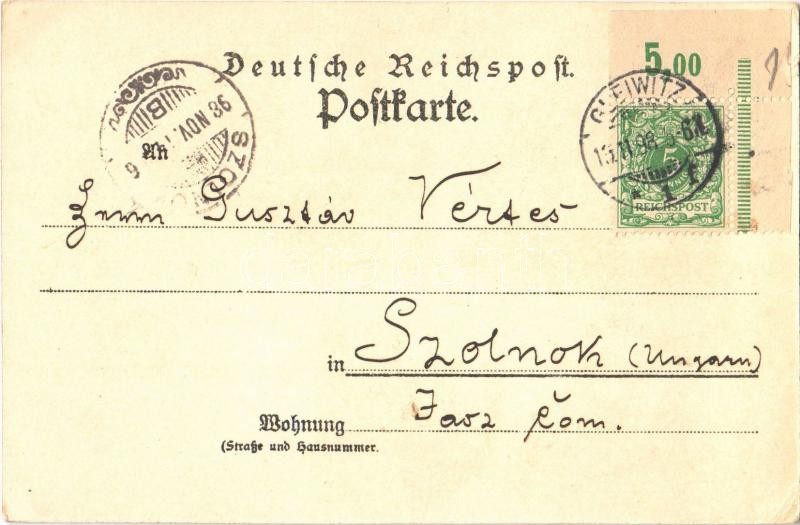 Deutsche Reichspost.
Postkarte.
5,00
GLEIWITZ
5
REICHSPOST
98 NOV.
B
SZO
An
Herrn Gusztáv Vértes
in Szolnok (Ungarn)
Wohnung Jasz Com.
(Straße und Hausnummer.